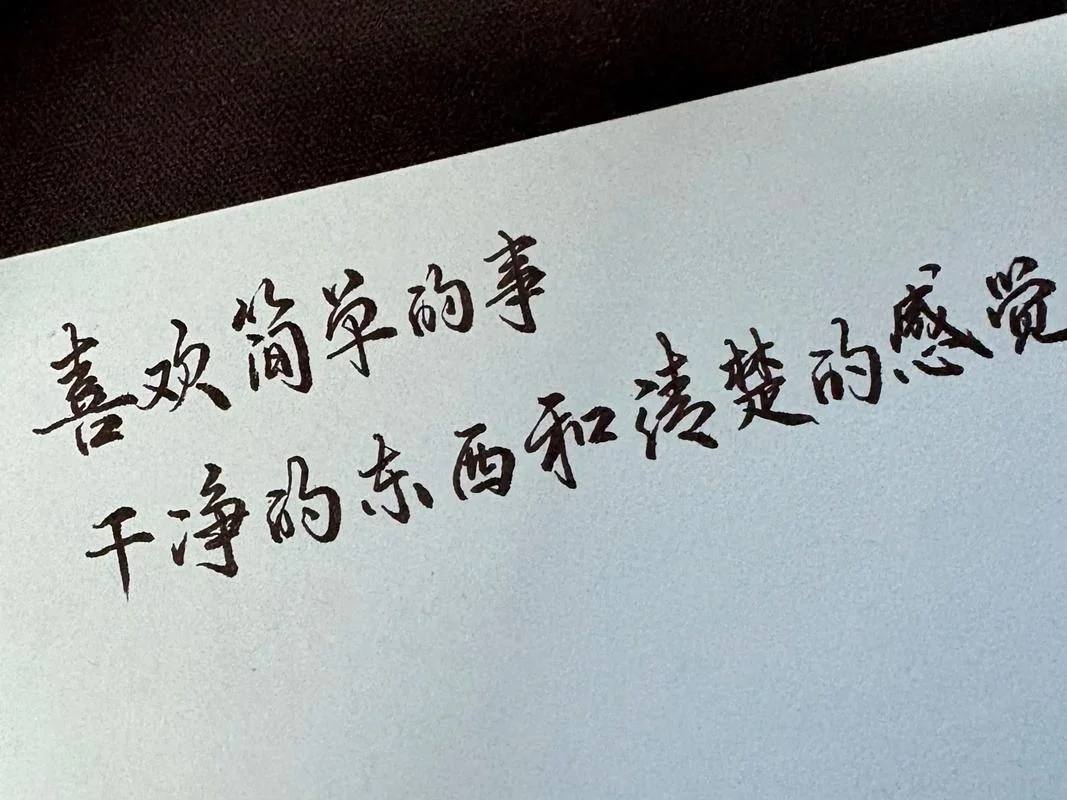 喜欢简单的事
干净的东西和清楚的感觉